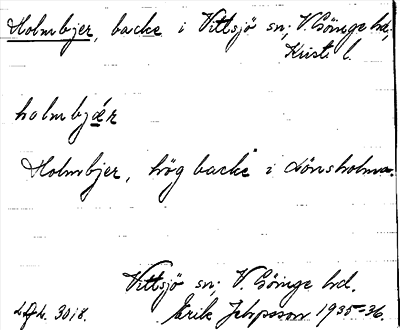 Holmbjer, backe i Vittsjö sn; V. Göinge hd,
Krist. l.
holmbjǽr
Holmbjer, hög backe i Lönsholma.
Vittsjö sn; V. Göinge hd.
3018. Erik Jeppsson 1935-36.